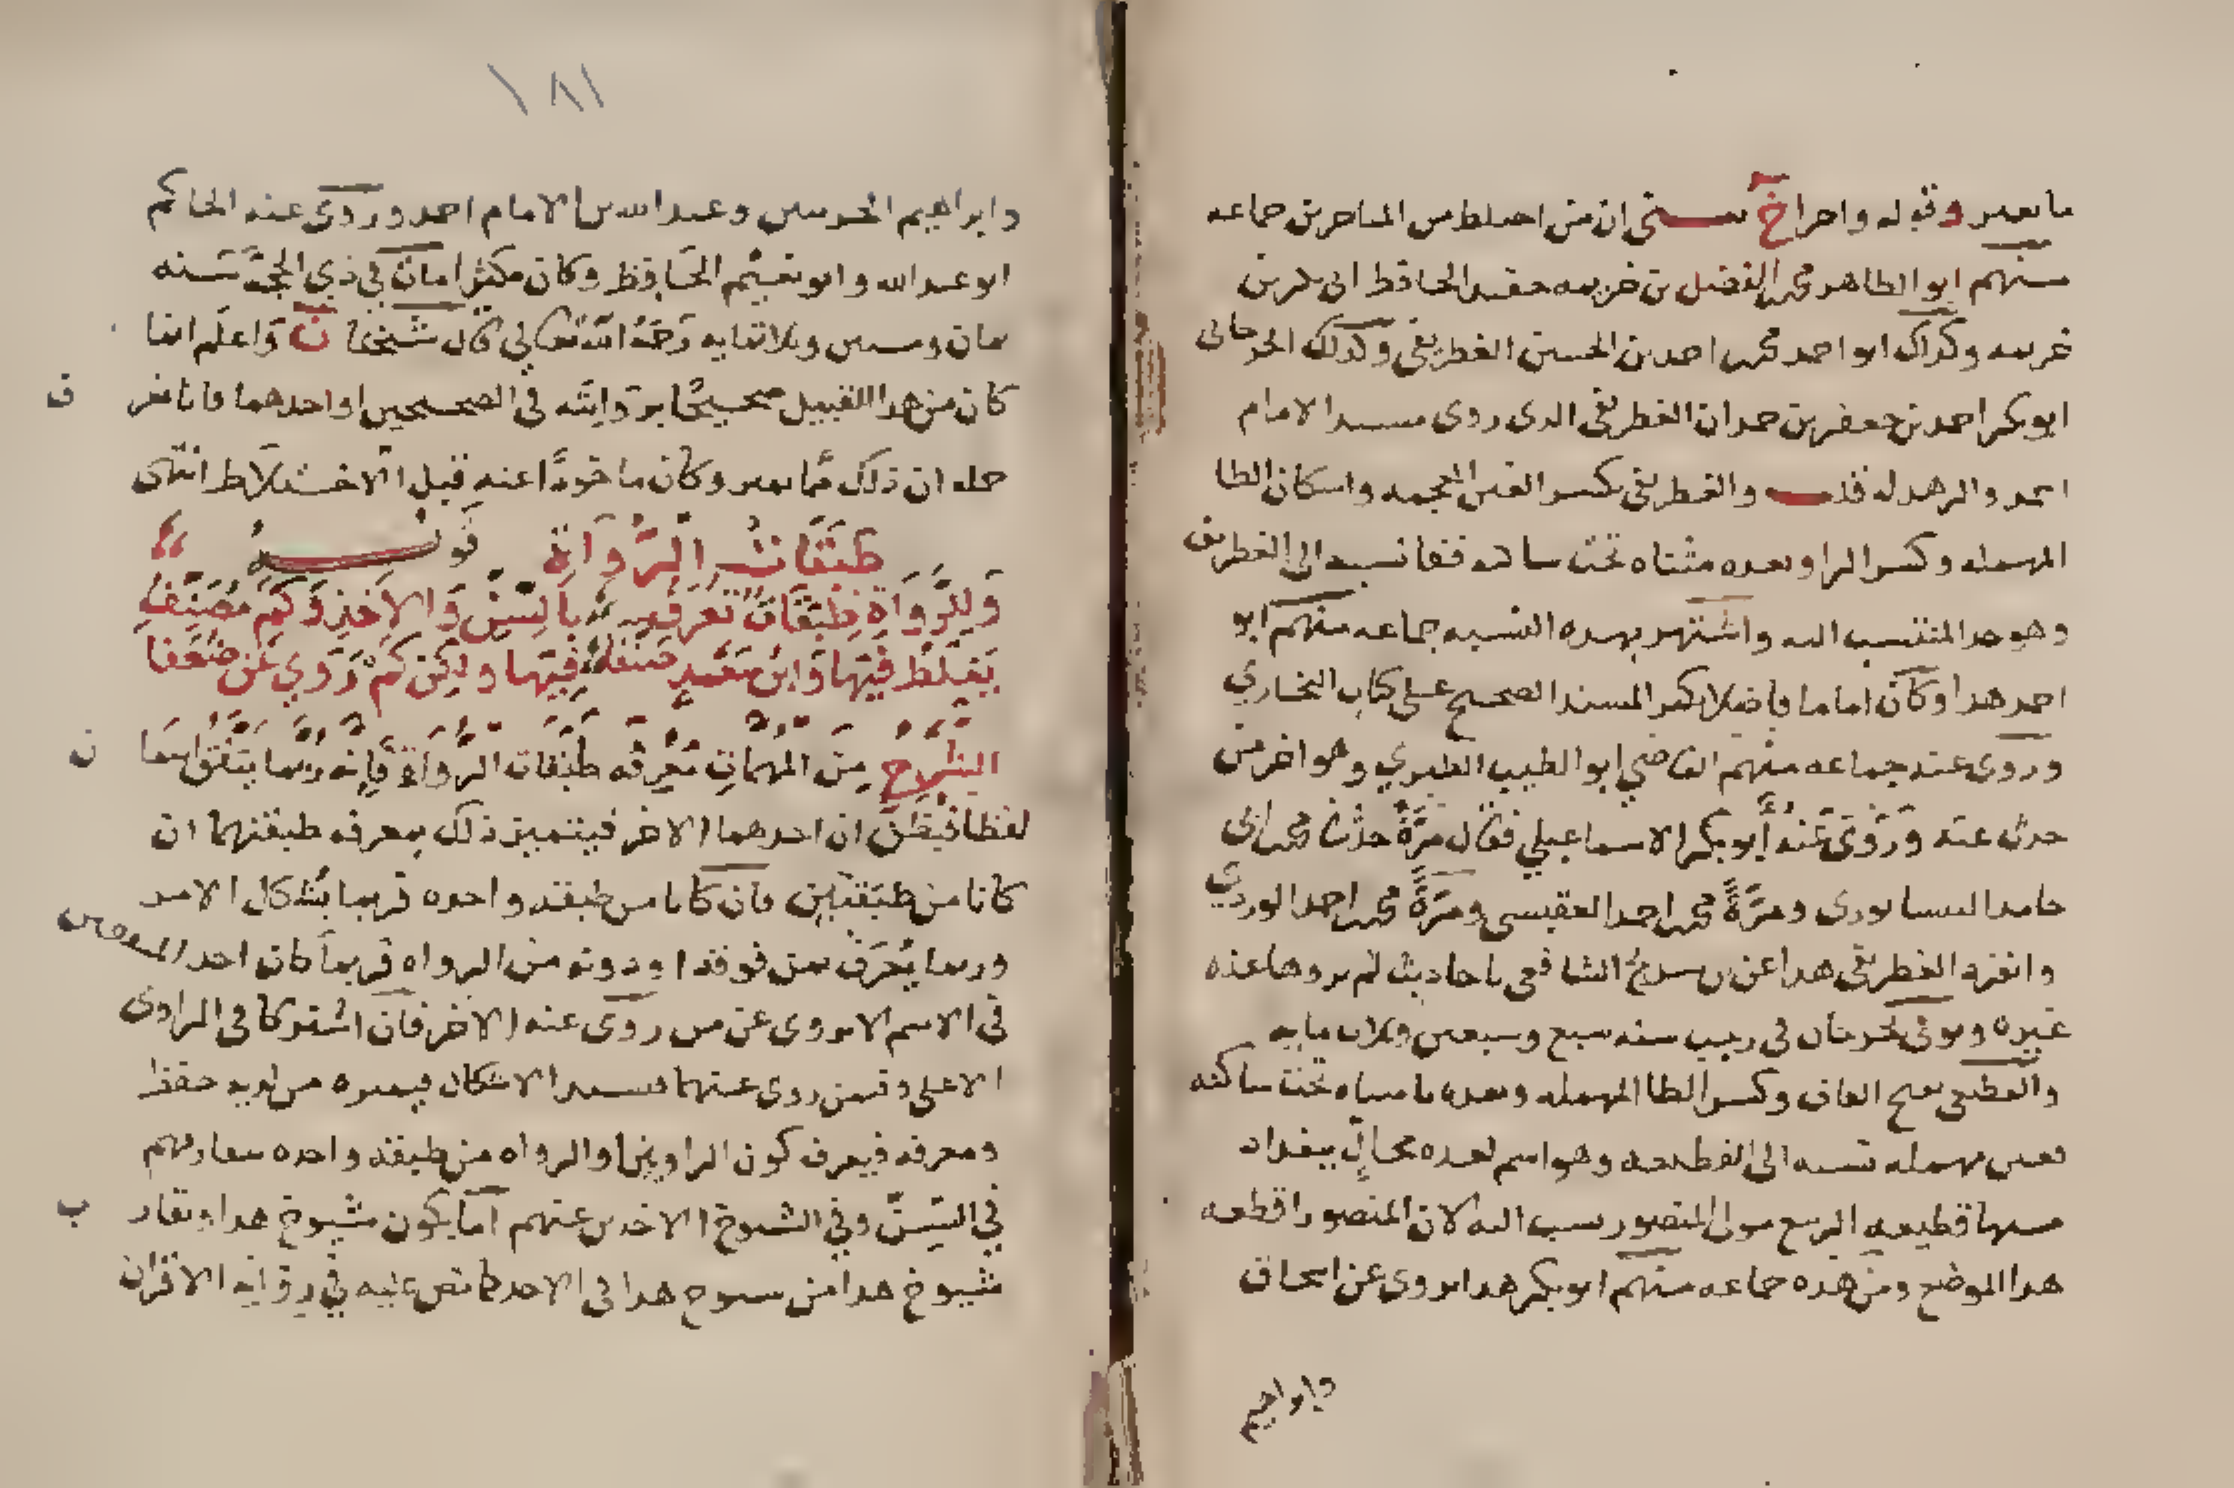 ما تغير وقوله واخرا خ يعني ان من اختلط من المتاخرين جماعه
منهم ابو الطاهر محمد الفضل بن خزيمه حفيد الحافظ ابي بكر بن
خزيمه وكذاك ابو احمد محمد احمد بن الحسين الغطريفي وكذلك الجرجاني
ابو بكر احمد بن جعفر بن حمدان الغطريفي الذي روى مسند الامام
احمد والزهد له قلت والغطريفي بكسر الغين المعجمه واسكان الطا
المهمله وكسر الرا وبعده مثناه تحت ساكنه ففا نسبه الى الغطريف
وهو جد المنتسب اليه واشتهر بهذه النسبه جماعه منهم ابو
احمد هذا وكان اماما فاضلا المسند الصحيح على كتاب البخاري
وروى عنه جماعه منهم القاضي ابو الطيب الطبري وهو اخر من
حدث عنه وروى عنه ابو بكر الاسماعيلي فقال مرة حدثنا محمد ابي
حامد النيسابوري ومرة محمد احمد العبقسي ومرة محمد احمد الوردي
وانفرد الغطريفي هذا عن بن سريج الشافعي باحاديث لم يروها عنه
غيره وتوفي بجرجان في رجب سنه سبع وسبعين وثلاث مايه
والقطيعي بفتح القاف وكسر الطا المهمله وبعده يا مثناه تحت ساكنه
فعين مهمله نسبه الى القطيعه وهو اسم لعده محال ببغداد
منها قطيعه الربيع مولى المنصور نسب اليه لان المنصور اقطعه
هذا الموضع ومن هذه جماعه منهم ابو بكر هذا يروي عن اسحاق
وابراهيم
١٨١
وابراهيم الحربيين وعبد الله بن الامام احمد وروى عنه الحاكم
ابو عبد الله وابو نعيم الحافظ وكان مكثرا مات في ذي الحجة سنه
ثمان وستين وثلاثمايه رحمه الله تعالى قال شيخنا ن واعلم انما
كان من هذا القبيل صحيحا بروايته في الصحيحين او احدهما فانا نعر ف
جمله ان ذلك مما تميز وكان ماخوذا عنه قبل الاختلاط انتهى
طبقات الرواة قوله
وللرواة طبقات تعرف بالسن والاخذ وكم مصنف
يغلط فيها وابن سعد صنفا فيها ولكن كم روى عن ضعفا
الشرح من المهمات معرفه طبقات الرواة فانه ربما يتفق اسما ن
لفظا فيظن ان احدهما الاخر فيتميز ذلك بمعرفه طبقتهما ان
كانا من طبقتين فان كانا من طبقه واحده فربما يشكل الامر
وربما يعرف بمن فوقه او دونه من الرواه فربما كان احد المتفقين
في الاسم لا يروي عن من روى عنه الاخر فان اشتركا في الراوي
الاعلى وفيمن روى عنهما فيشتد الاشكال فيميزه من لديه حفظ
ومعرفه فيعرف كون الراويين او الرواه من طبقه واحده بتقاربهم
في السن وفي الشيوخ الاخذين عنهم اما يكون شيوخ هذا وتقار ب
شيوخ هذا من شيوخ هذا في الاخذ كما نص عليه في رواية الاقران